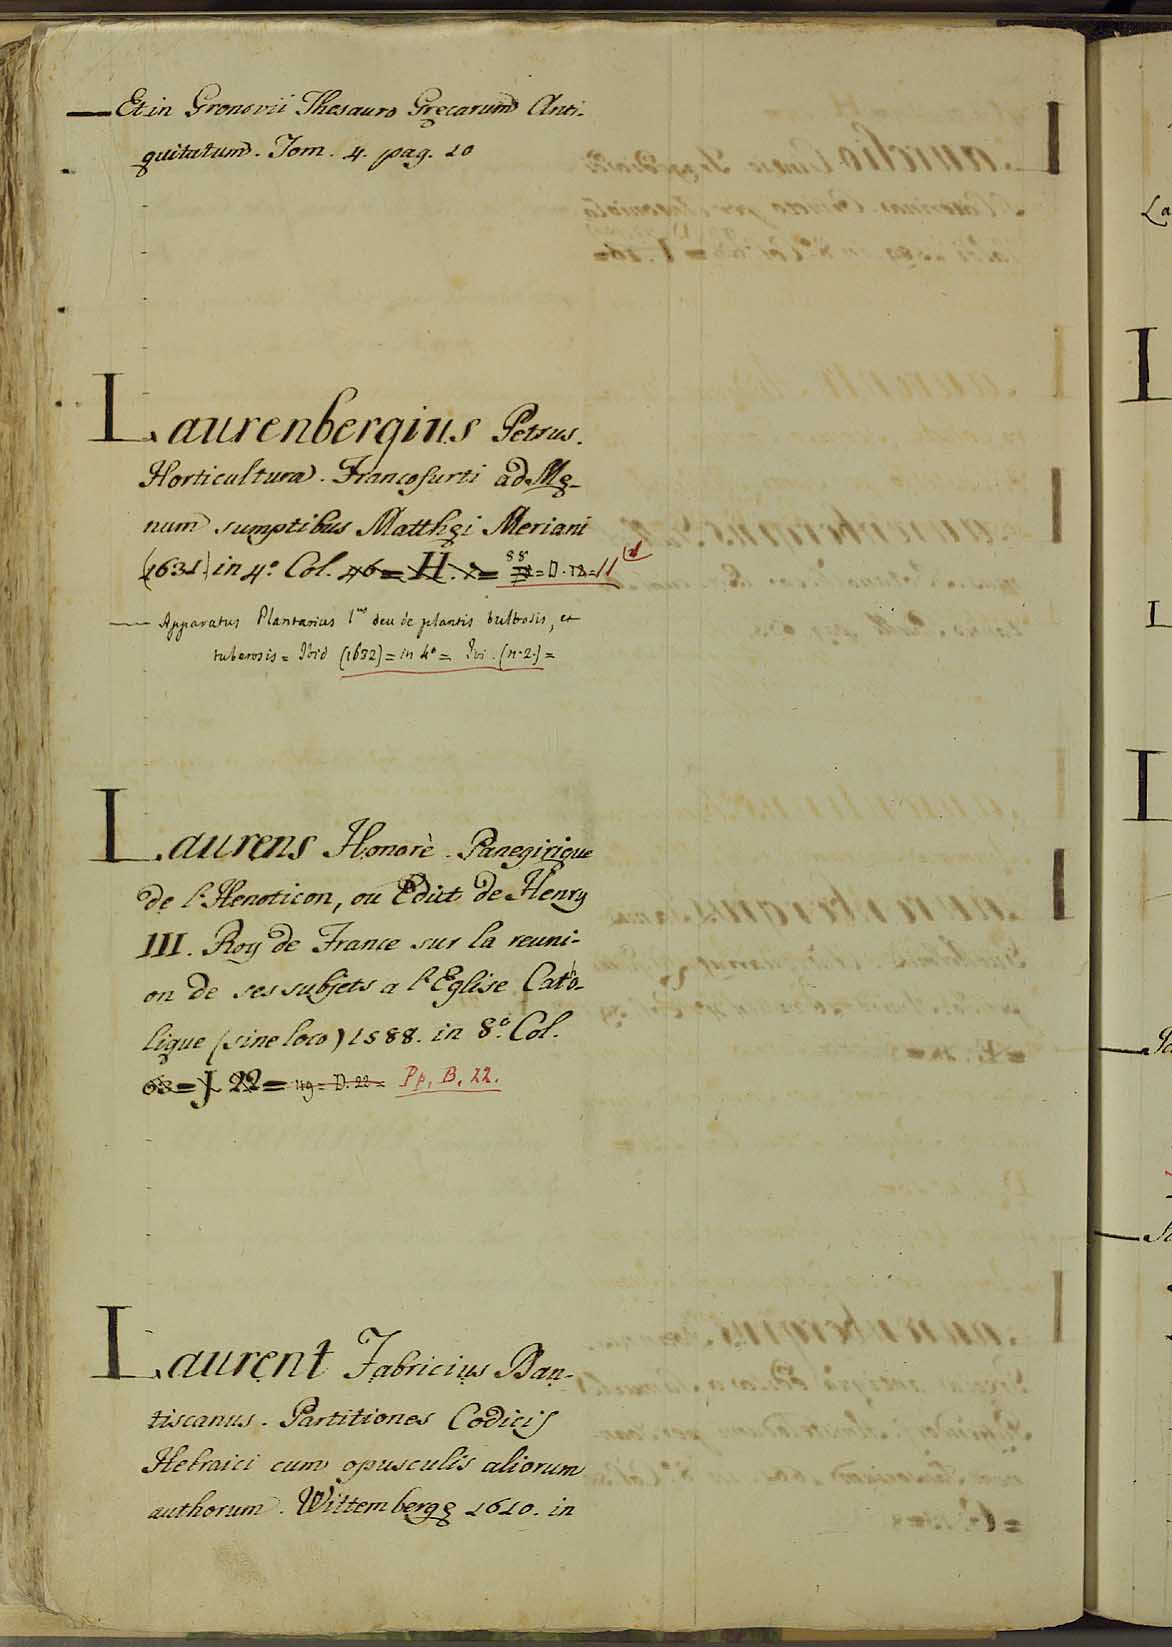 — Et in Gronovii Thesauro Gręcarum Anti-
quitatum. Tom. 4. pag. 10
Laurenbergius Petrus.
Horticultura. Francofurti ad Mę-
num sumptibus Matthęi Meriani
(1631) in 4.º Col. 46 = H. = 88 = D. 12 = 11
— Apparatus Plantarius 1.us deu de plantis bulbosis, et
tuberosis = Ibid (1632) = in 4º = Ivi. (n. 2.) =
Laurens Honorè. Panegirique
de l'Henoticon, ou Edict de Henry
III. Roy de France sur la reuni-
on de ses subjets a l'Eglise Cato-
lique (sine loco) 1588. in 8.º Col.
63 = J. 22 = 119 = D. 22 = Pp. B. 22.
Laurent Fabricius Dan-
tiscanus. Partitiones Codicis
Hebraici cum opusculis aliorum
authorum. Wittembergę 1610. in